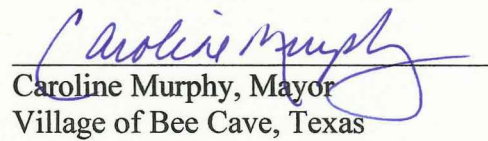 Caroline Murphy
Caroline Murphy, Mayor
Village of Bee Cave, Texas